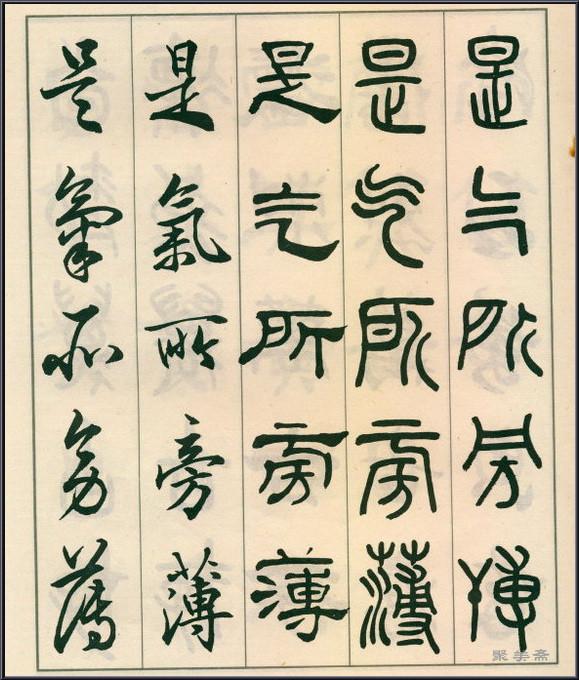 是气所旁薄
是气所旁薄
是气所旁薄
是氣所旁薄
是氣所旁薄
聚美斋